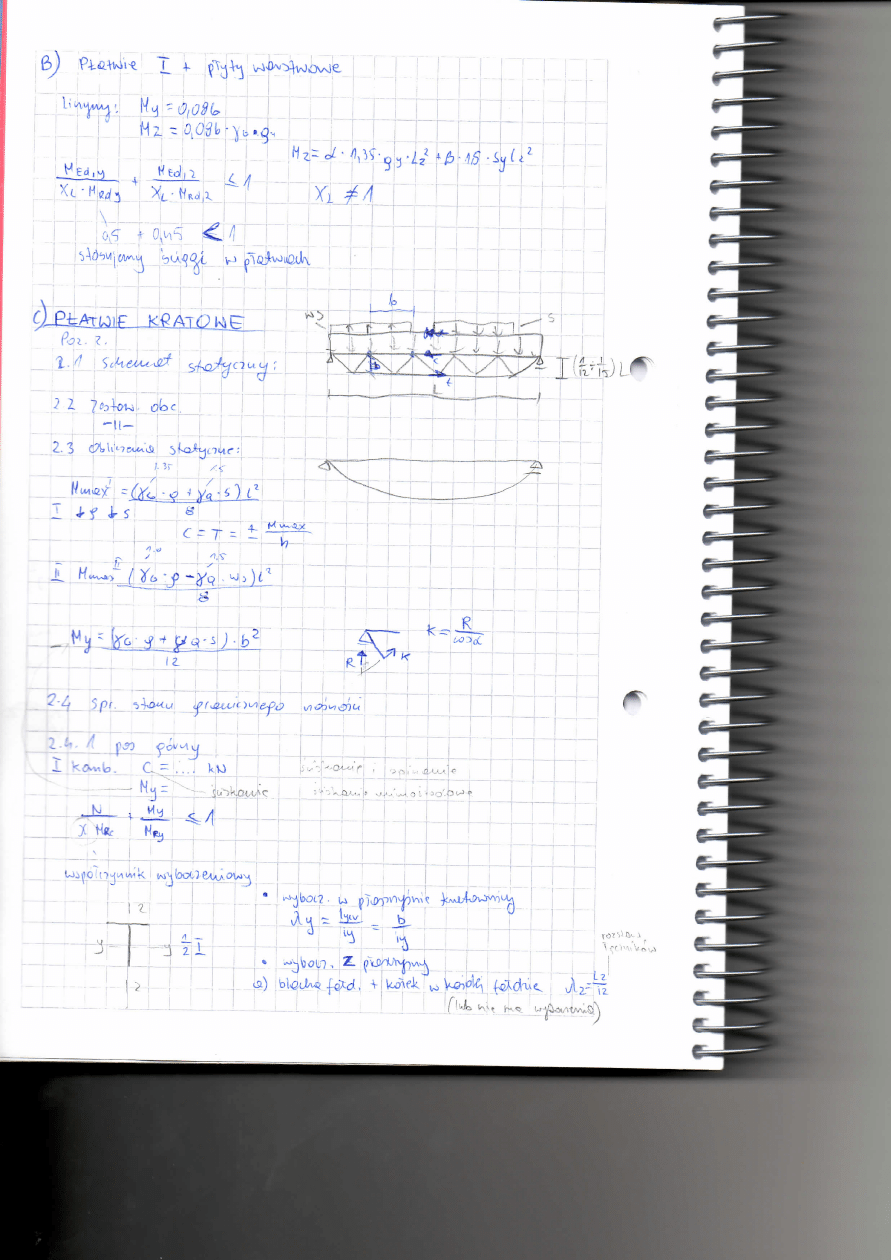 B) Płatwie I + płyty warstwowe
liczymy: My = 0,096
Mz = 0,096 · γG · gy
Mz = α · 1,35 · gy · Lz² + β · 1,5 · Sy Lz²
MEd,y / (XL · MRdy) + MEd,z / (XL · MRd,z) ≤ 1
XL ≠ 1
0,5 + 0,45 < 1
stosujemy ściągi w płatwiach
C) PŁATWIE KRATOWE
Poz. 2.
ws b s
2.1 Schemat statyczny:
I (1/12 ÷ 1/15) L
L
2.2 Zestaw. obc.
-||-
2.3 Obliczenia statyczne:
1.35 1.5
Mmax I = (γG · g + γQ · s) l² / 8
I ↓g ↓s
C = T = ± Mmax / h
1.0 1.5
II Mmax II (γG · g - γQ · ws) l² / 8
My = (γG · g + γQ · s) · b² / 12
R K
K = R / cosα
2.4 Spr. stanu granicznego nośności
2.4.1 pas górny
I komb. C = .... kN ściskanie i zginanie
My = ściskanie ściskanie mimośrodowe
N / (X MRc) + My / MRy ≤ 1
współczynnik wyboczeniowy
• wybocz. w płaszczyźnie kratownicy
λy = lycr / iy = b / iy
z
y y 1/2 I
z
• wybocz. z płaszczyzny
rozstaw łączników
a) blacha fałd. + kołek w każdej fałdzie λz = Lz / 12
(lub nie ma wyboczenia)